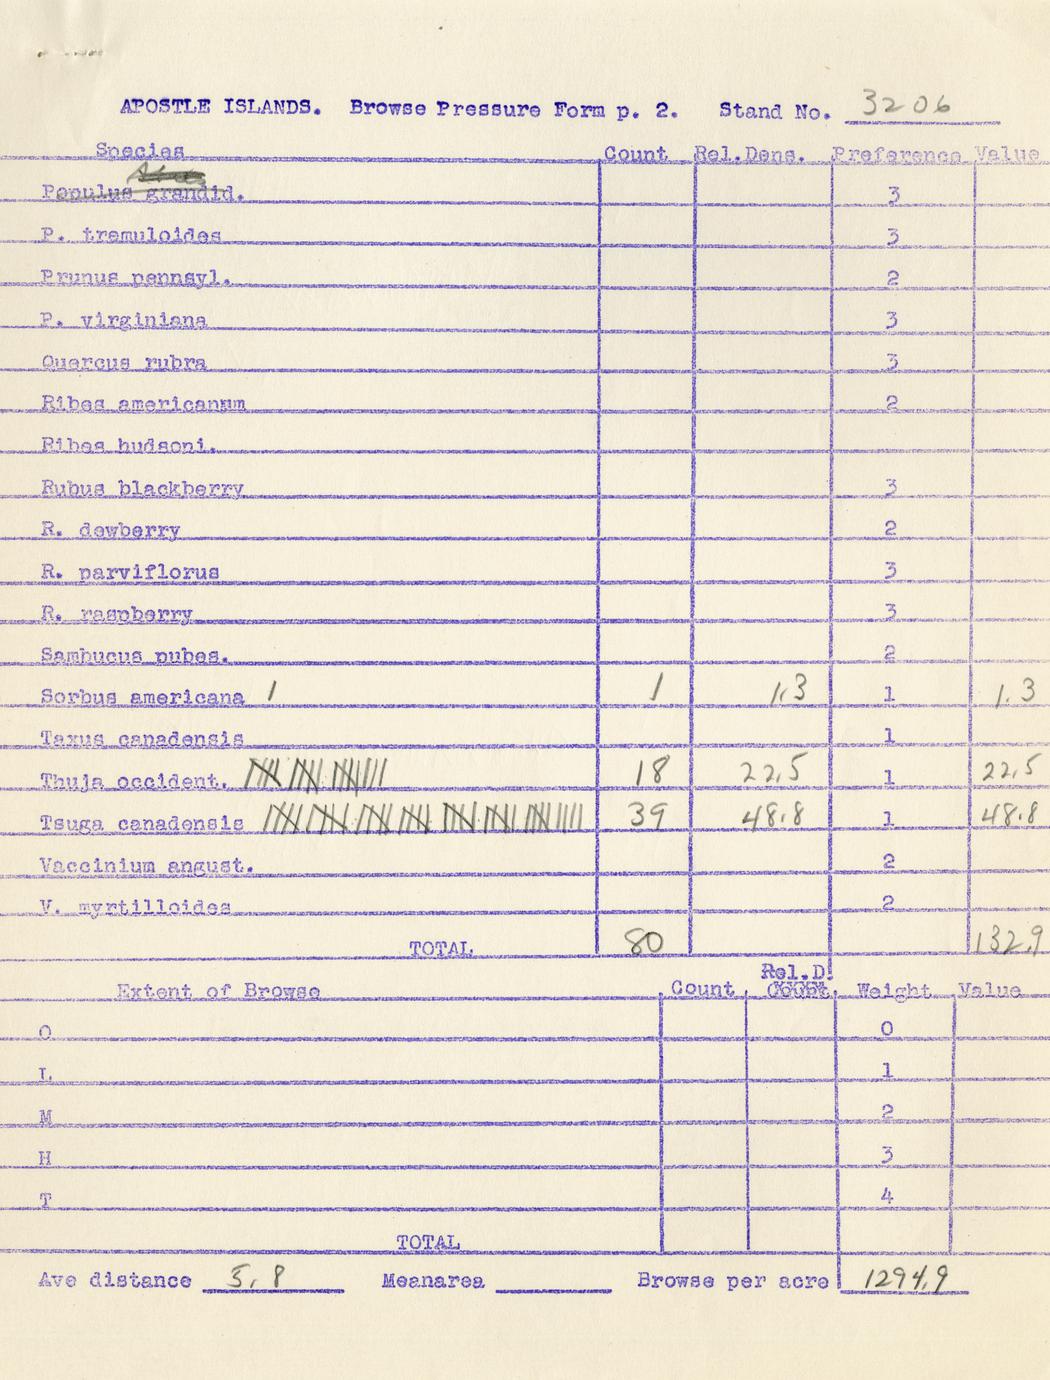 APOSTLE ISLANDS. Browse Pressure Form p. 2. Stand No. 3206
Species Count Rel.Dens. Preference Value
Populus grandid. 3
P. tremuloides 3
Prunus pennsyl. 2
P. virginiana 3
Quercus rubra 3
Ribes americanum 2
Ribes hudsoni.
Rubus blackberry 3
R. dewberry 2
R. parviflorus 3
R. raspberry 3
Sambucus pubes. 2
Sorbus americana 1 1 1.3 1 1.3
Taxus canadensis 1
Thuja occident. 18 22.5 1 22.5
Tsuga canadensis 39 48.8 1 48.8
Vaccinium angust. 2
V. myrtilloides 2
TOTAL 80 132.9
Rel.D.
Extent of Browse Count Count Weight Value
O 0
L 1
M 2
H 3
T 4
TOTAL
Ave distance 5.8 Meanarea Browse per acre 1294.9